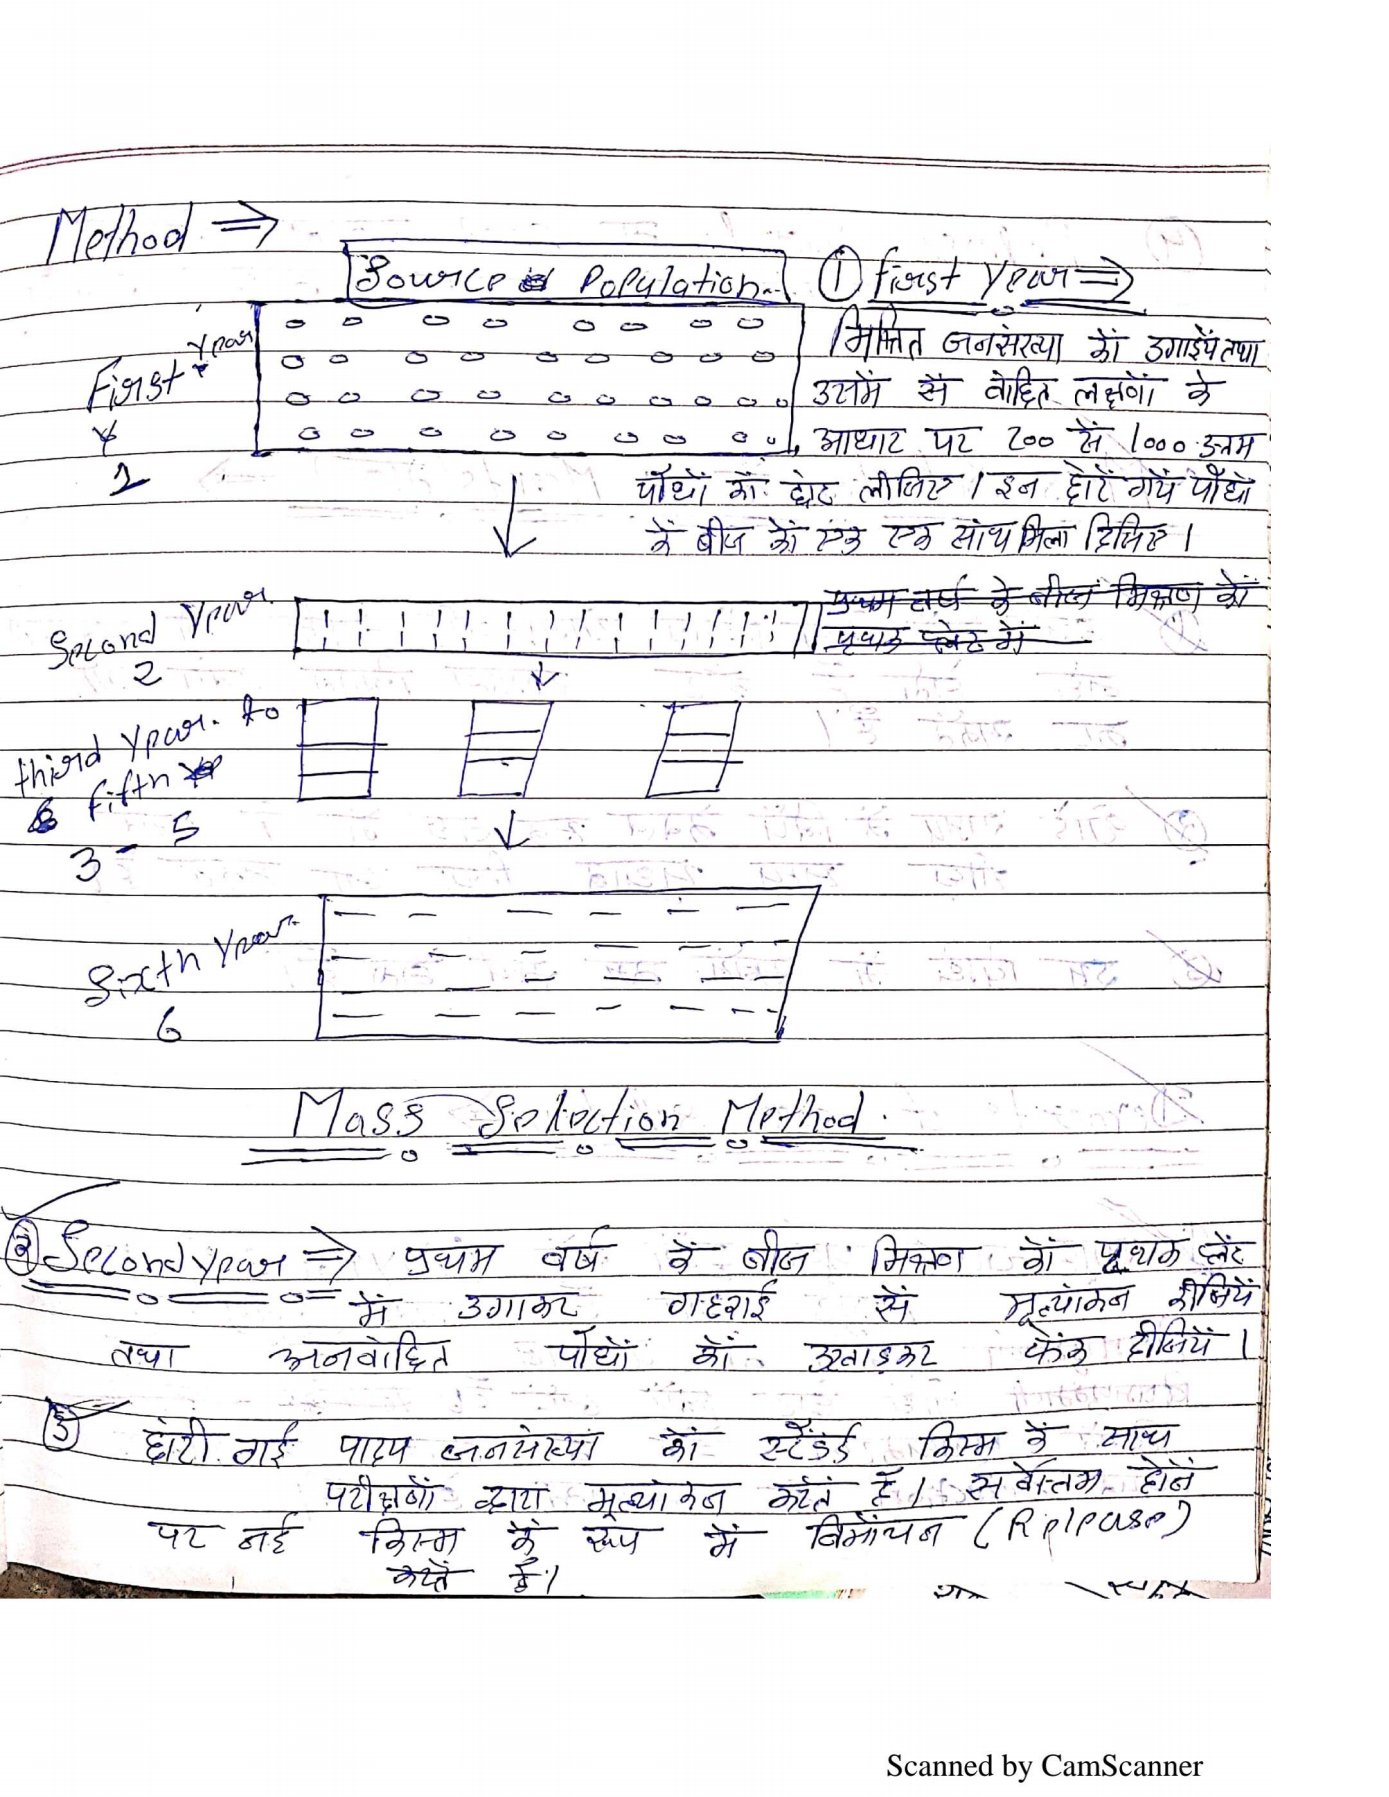 Method ⇒
Source Population.
① First Year ⇒
First Year
1
मिश्रित जनसंख्या को उगाईये तथा
उसमें से वांछित लक्षणों के
आधार पर 200 से 1000 उत्तम
पौधों को छांट लीजिए। इन छांटें गयें पौधों
के बीज को एक एक साथ मिला दिजिए।
Second Year.
2
प्रथम वर्ष के बीज मिश्रण को
पृथक प्लेट में
third Year. to
fifth
3 - 5
Sixth Year.
6
Mass Selection Method.
② Second year ⇒ प्रथम वर्ष के बीज मिश्रण को पृथक प्लेट
में उगाकर गहराई से मूल्यांकन कीजियें
तथा अनवांछित पौधों को उखाड़कर फेंक दीजियें।
③ छांटी गई पादप जनसंख्या को स्टैंडर्ड किस्म के साथ
परीक्षणों द्वारा मूल्यांकन करते हैं। सर्वोत्तम होनें
पर नई किस्म के रूप में विमोचन (Release)
करते हैं।
Scanned by CamScanner